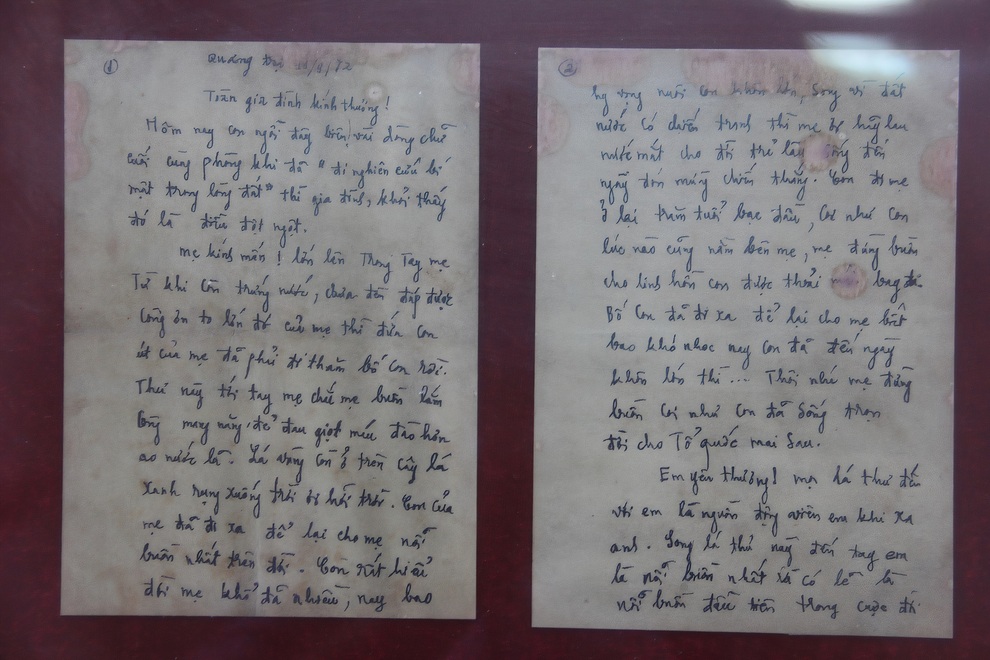 1
Quảng trị 11/9/72
Toàn gia đình kính thương!
Hôm nay con ngồi đây biên vài dòng chữ
cuối cùng phòng khi đã "đi nghiên cứu bí
mật trong lòng đất" thì gia đình, khỏi thấy
đó là điều đột ngột.
Mẹ kính mến! lớn lên Trong Tay mẹ
Từ khi còn trứng nước, chưa đền đáp được
Công ơn to lớn đó của mẹ thì đứa con
út của mẹ đã phải đi thăm bố con rồi.
Thư này tới tay mẹ chắc mẹ buồn lắm
lòng mang nặng đẻ đau giọt máu đào hơn
ao nước lã. Lá vàng còn ở trên cây lá
xanh rụng xuống trời ơi hỡi trời. Con của
mẹ đã đi xa để lại cho mẹ nỗi
buồn nhất trên đời. Con rất hiểu
đời mẹ khổ đã nhiều, nay bao
2
hy vọng nuôi con khôn lớn, Song vì đất
nước có chiến tranh thì mẹ ơi hãy lau
nước mắt cho đời trẻ lâu sống đến
ngày đón mừng chiến thắng. Con đi mẹ
ở lại trăm tuổi bạc đầu, Coi như con
lúc nào cũng nằm bên mẹ, mẹ đừng buồn
cho linh hồn con được thoải mái bay đi.
Bố con đã đi xa để lại cho mẹ biết
bao khó nhọc nay con đã đến ngày
khôn lớn thì... Thôi nhé mẹ đừng
buồn coi như con đã sống trọn
đời cho Tổ quốc mai Sau.
Em yêu thương! mọi lá thư đến
với em là nguồn động viên em khi xa
anh. Song lá thư này đến tay em
là nỗi buồn nhất và có lẽ là
nỗi buồn đầu tiên trong cuộc đời